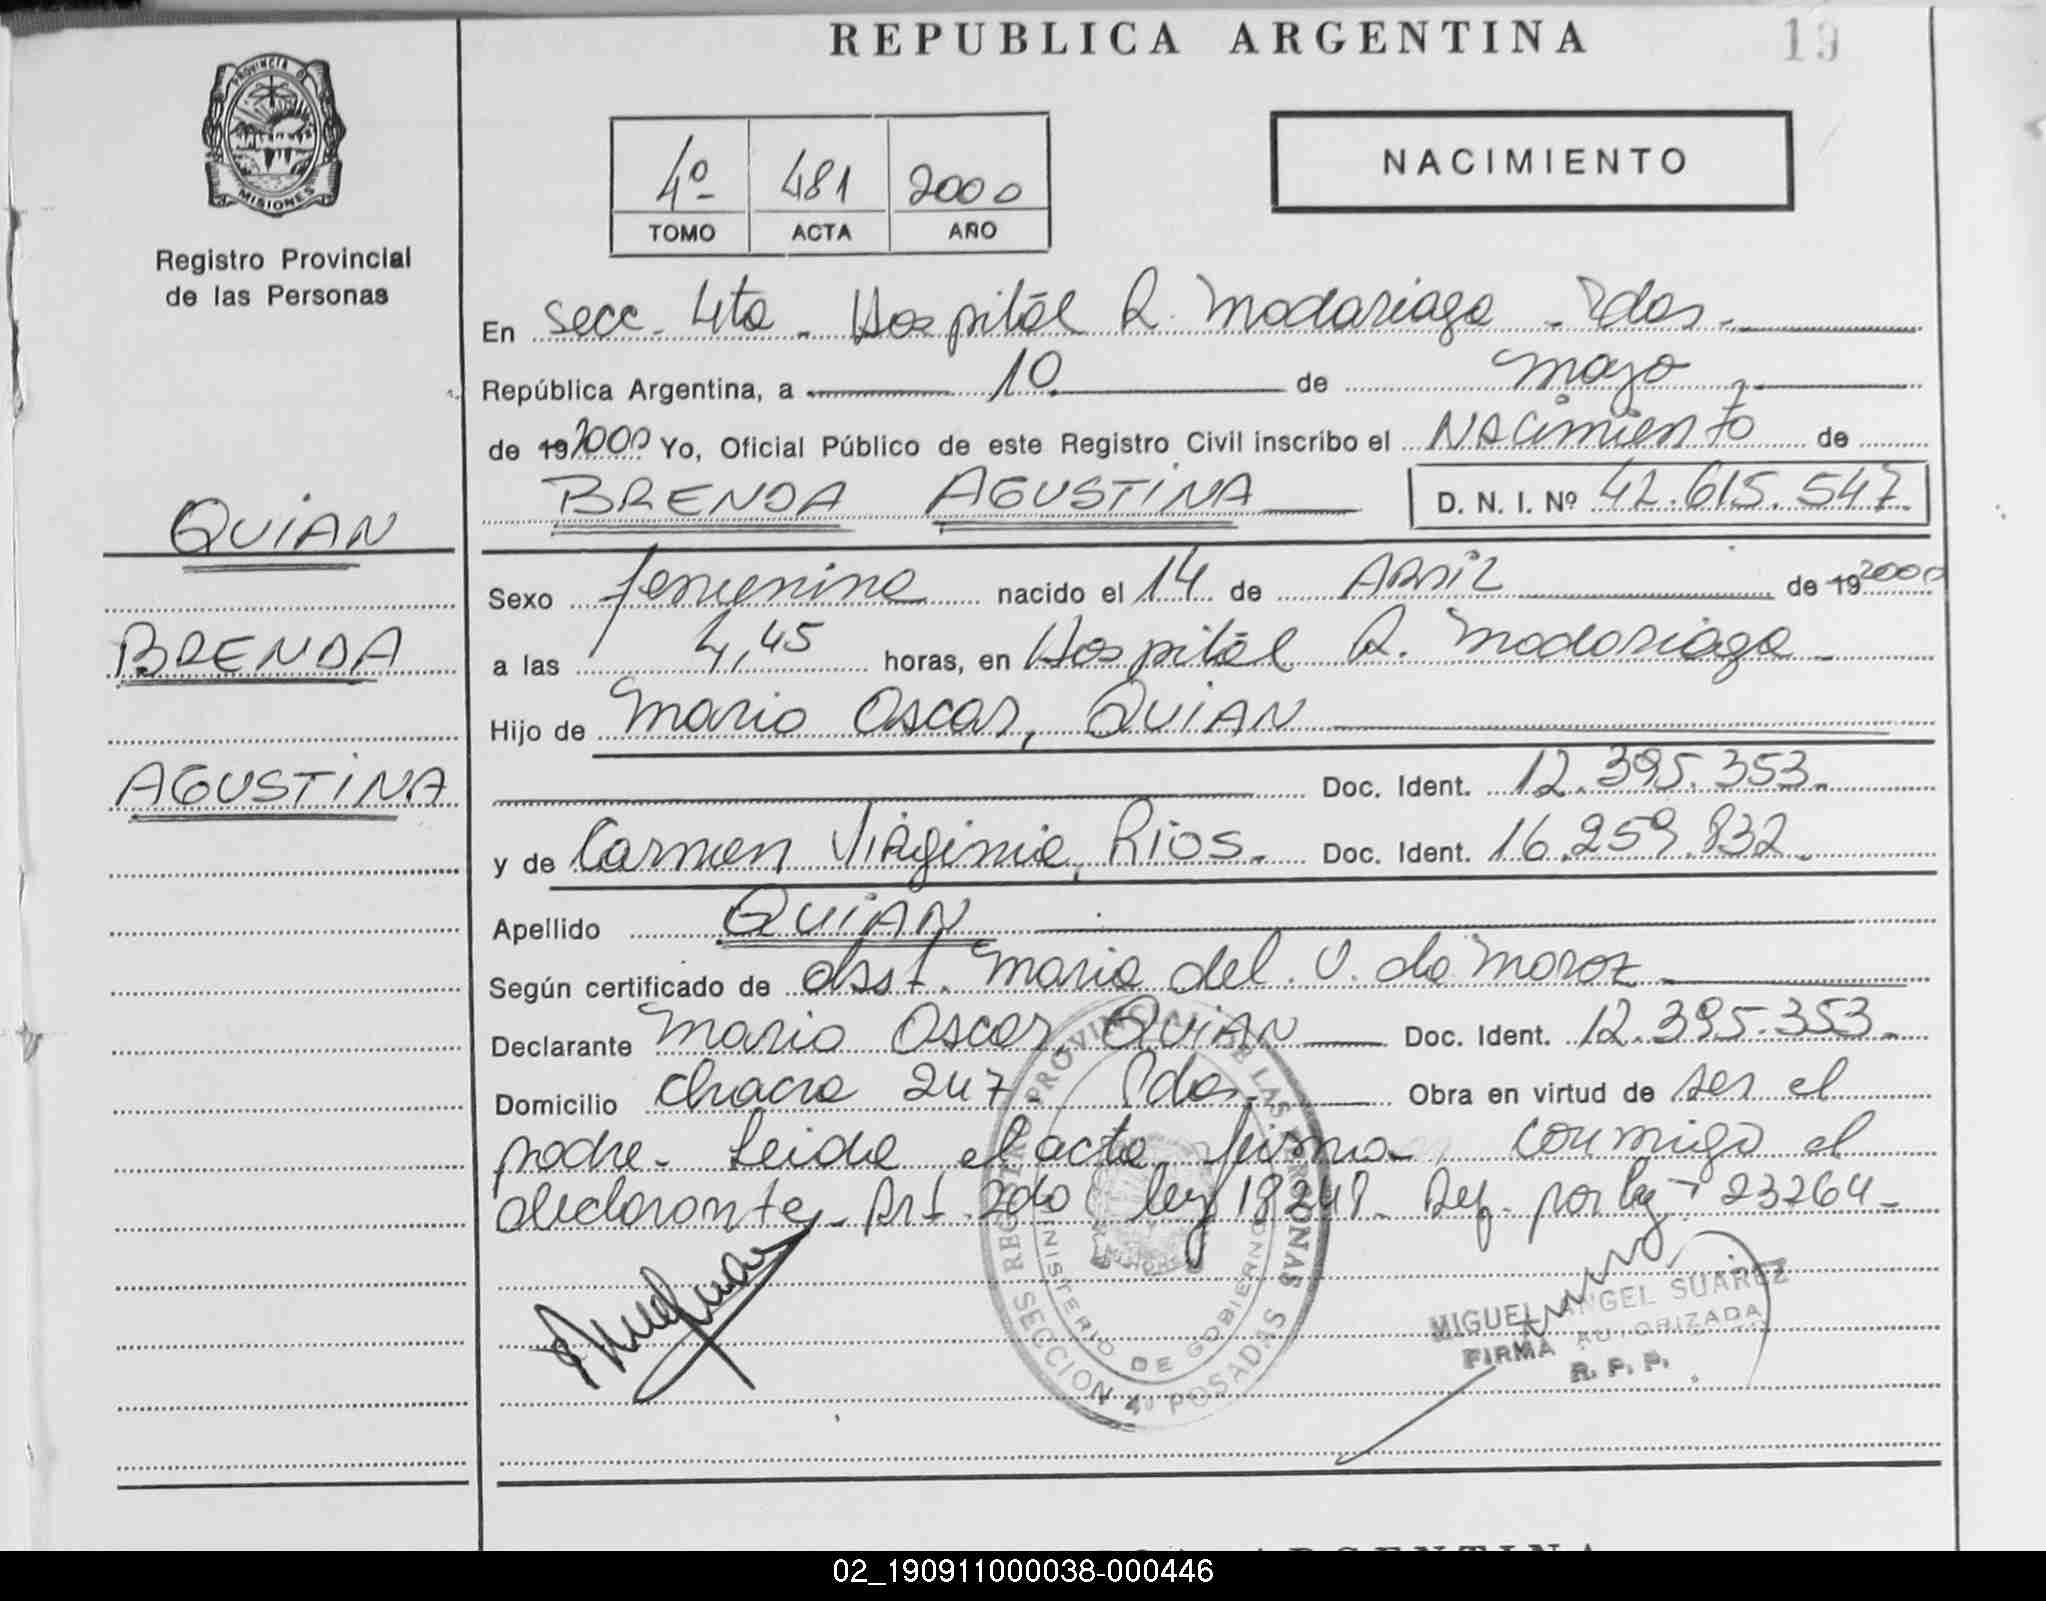 REPUBLICA ARGENTINA
19
PROVINCIA D
MISIONES
Registro Provincial
de las Personas
4º 481 2000
TOMO ACTA AÑO
NACIMIENTO
En secc. 4ta - Hospital R. Madariaga - Pdas.
República Argentina, a 10 de mayo
de 19 2000 Yo, Oficial Público de este Registro Civil inscribo el Nacimiento de
BRENDA AGUSTINA D. N. I. Nº 42.615.547.
QUIAN
BRENDA
AGUSTINA
Sexo femenino nacido el 14 de Abril de 19 2000
a las 4,45 horas, en Hospital R. Madariaga -
Hijo de Mario Oscar, QUIAN
Doc. Ident. 12.395.353.
y de Carmen Virginia, Rios. Doc. Ident. 16.259.832.
Apellido QUIAN
Según certificado de obst. Maria del. V. de Moroz
Declarante Mario Oscar, QUIAN Doc. Ident. 12.395.353.
Domicilio chacra 247. Pdas. Obra en virtud de ser el
padre. Leida el acta firma conmigo el
declarante. Art. 2do ley 18248. Def. por ley 23264.
REGISTRO PROVINCIAL DE LAS PERSONAS
MINISTERIO DE GOBIERNO
SECCION 4 POSADAS
MIGUEL ANGEL SUAREZ
FIRMA AUTORIZADA
R. P. P.
02_190911000038-000446